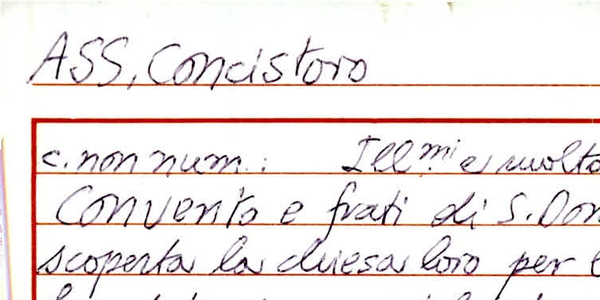 ASS, Concistoro
c. non num.: Ill.mi e molto
Convento e frati di S. Dom
scoperta la chiesa loro per